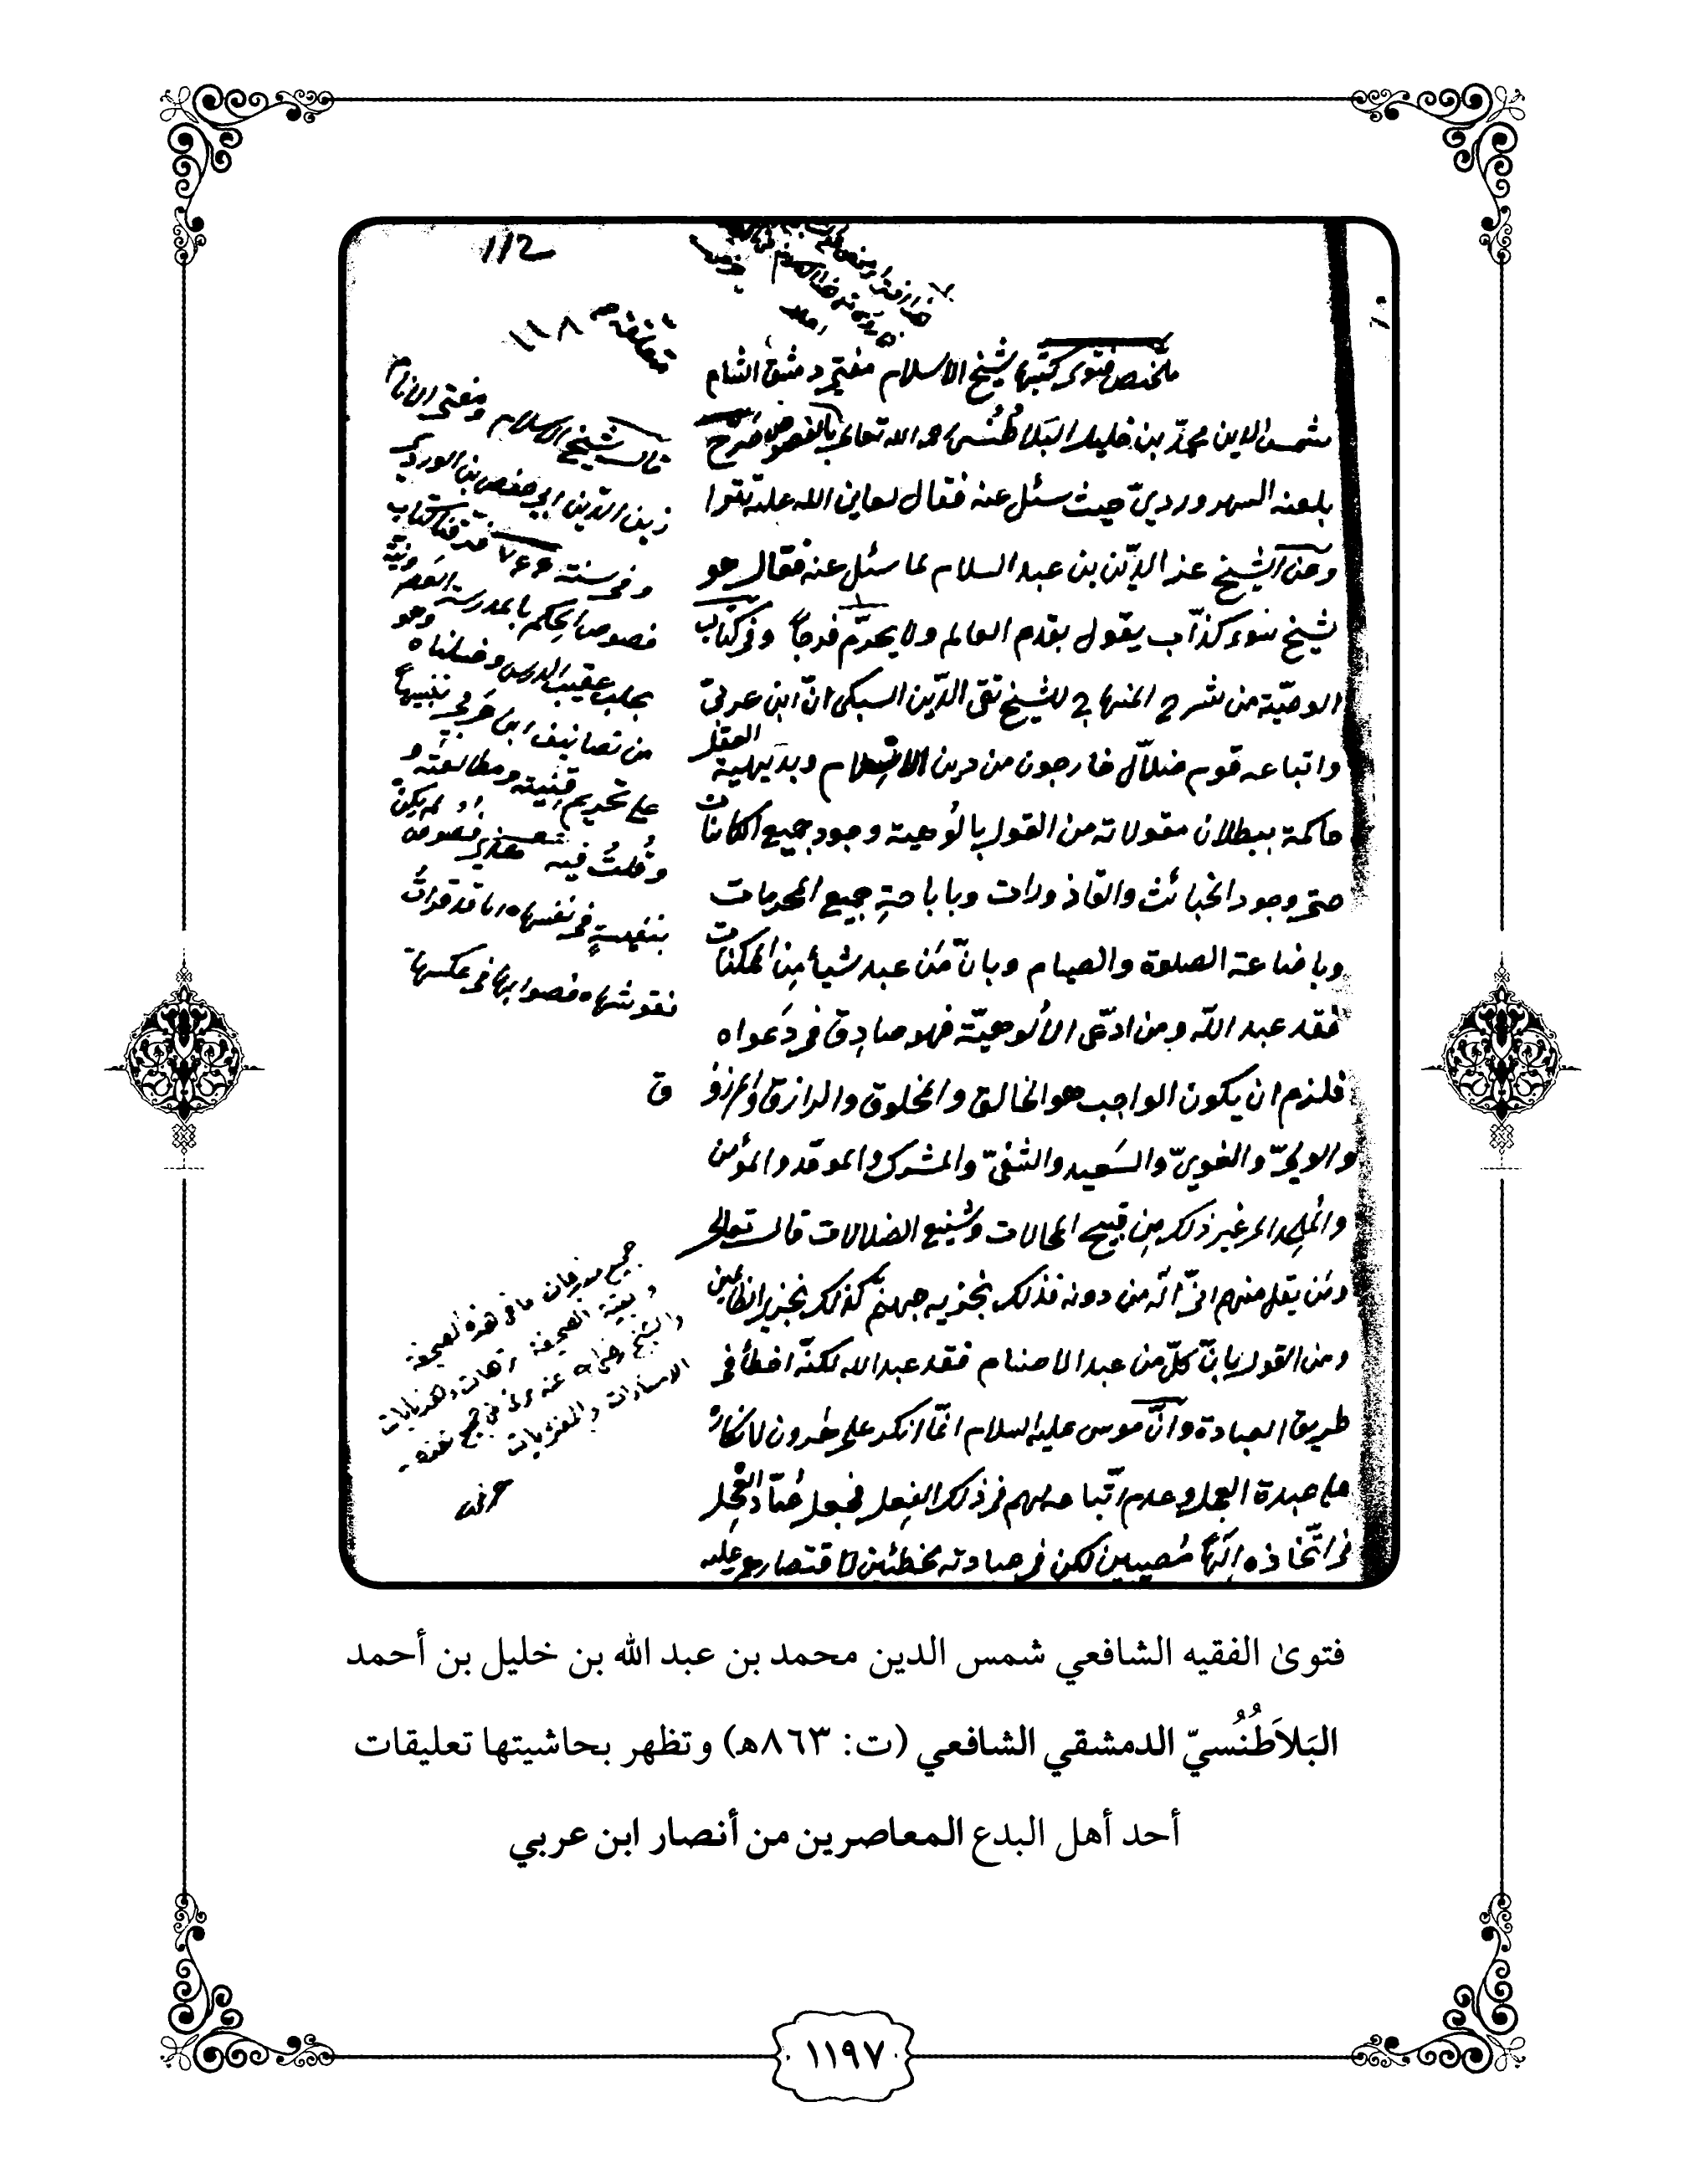 112
ملخص فتوى كتبها شيخ الاسلام مفتي دمشق الشام
شمس الدين محمد بن خليل البَلَاطُنُسي رحمه الله تعالى بالفصوص صَرّح
بلعنه السهرورديّ حيث سئل عنه
وعن الشيخ عز الدّين بن عبد السلام لما سئل عنه فقال هو
شيخ سوء كذّاب يقول بقدم العالم ولا يحرّم فرجاً وفى كتاب
الوصيّة من شرح المنهاج للشيخ تقى الدّين السبكى انّ ابن عربىّ
واتباعه قوم ضلّال خارجون من دين الاسلام وبديهية العقل
حاكمة ببطلان مقولاته من القول بالُوهية وجود جميع الكائنات
حتى وجود الخبائث والقاذورات وباباحةِ جميع المحرمات
وباضاعة الصلوة والصيام وبانّ مَن عبد شيأ مِن الممكنات
فقد عبد اللّه ومن ادّعى الألوهيّة فهو صادِق فى دَعواه
فلزم ان يكون الواجب هو الخالق والمخلوق والرازق والمرزوق
والولىّ والغوىّ والسَعيد والشقىّ والمشرك والموحّد والمؤمن
والمُلحِد الى غير ذلك مِن قبيح المحالات وشنيع الضلالات قال تعالى
ومَن يقل منهم انّى اله من دونه فذلك نجزيه جهنّم كذلك نجزى الظالمين
ومن القول بانّ كلّ من عبد الاصنام فقد عبد الله لكنّه اخطأ فى
طريق العبادة وانَّ موسى عليه السلام انّما انكر على هٰرون لانكاره
على عبدة العجل وعدم اتّباعه لهم فى ذلك الفعل فجعل عُبّاد العِجل
فى اتّخاذه الٰهًا مُصيبين لكن فى عبادته مخطئين لاقتصارهم عليه
قال شيخ الاسلام ومفتى الانام
زين الدّين ابى حفص بن الوردى
وفى سنة ٧٤٤ مزقنا كتاب
فصوص الحِكم بالمدرسة العَصرونيّة
بحلب عقيب الدرس وغسلناه وهو
من تصانيف ابن عَربى تنبيهاً
على تحريم قِنْيته ومطالعته و
وقُلتُ فيه هذى فصوص لم تكن
بنفيسةٍ فى نفسها انا قد قرأتُ
نقوشها فصوابها فى عكسها
فتوىٰ الفقيه الشافعي شمس الدين محمد بن عبد الله بن خليل بن أحمد
البَلاَطُنُسيّ الدمشقي الشافعي (ت: ٨٦٣هـ) وتظهر بحاشيتها تعليقات
أحد أهل البدع المعاصرين من أنصار ابن عربي
١١٩٧